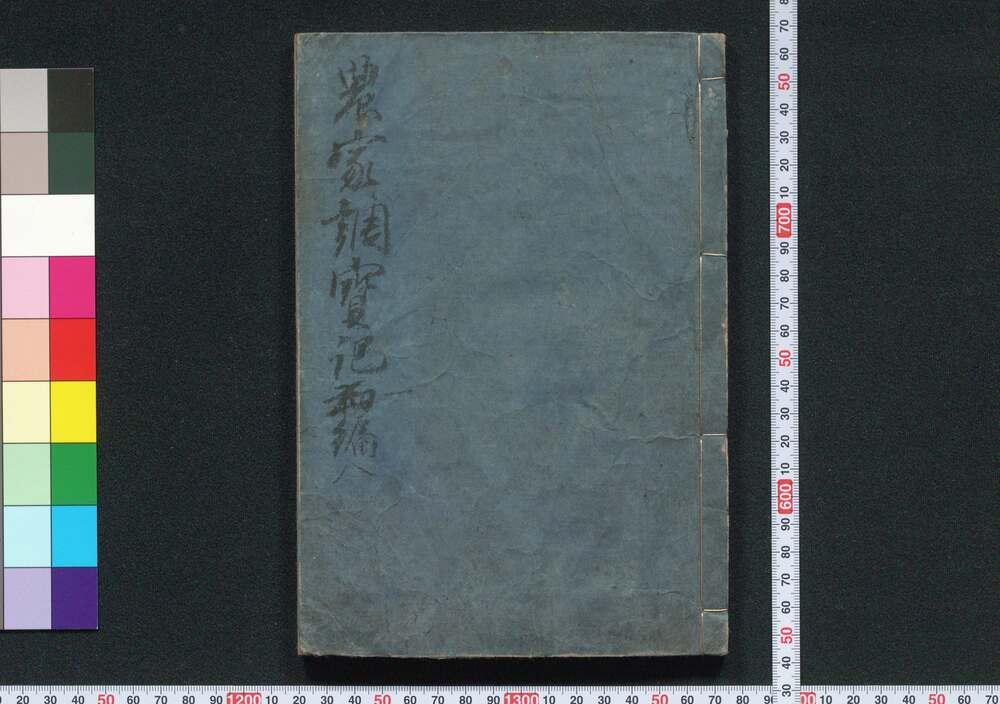 農家調寶記初編
70 60 50 40 30 20 10 700 90 80 70 60 50 40 30 20 10 600 90 80 70 60 50 40 30
20 30 40 50 60 70 80 90 1200 10 20 30 40 50 60 70 80 90 1300 10 20 30 40 50 60 70 80 10 20 30 40 50 60 70